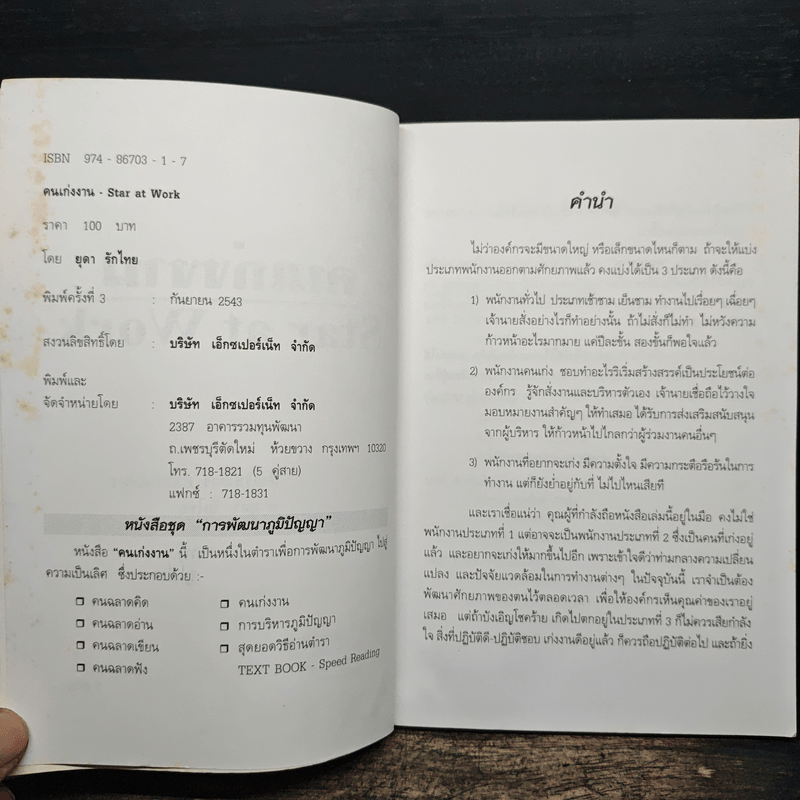 ISBN 974 - 86703 - 1 - 7
คนเก่งงาน - Star at Work
ราคา 100 บาท
โดย ยุดา รักไทย
พิมพ์ครั้งที่ 3 : กันยายน 2543
สงวนลิขสิทธิ์โดย : บริษัท เอ็กซเปอร์เน็ท จำกัด
พิมพ์และ
จัดจำหน่ายโดย : บริษัท เอ็กซเปอร์เน็ท จำกัด
2387 อาคารรวมทุนพัฒนา
ถ.เพชรบุรีตัดใหม่ ห้วยขวาง กรุงเทพฯ 10320
โทร. 718-1821 (5 คู่สาย)
แฟกซ์ : 718-1831
หนังสือชุด “การพัฒนาภูมิปัญญา”
หนังสือ “คนเก่งงาน” นี้ เป็นหนึ่งในตำราเพื่อการพัฒนาภูมิปัญญา ไปสู่
ความเป็นเลิศ ซึ่งประกอบด้วย :-
❒ คนฉลาดคิด ❒ คนเก่งงาน
❒ คนฉลาดอ่าน ❒ การบริหารภูมิปัญญา
❒ คนฉลาดเขียน ❒ สุดยอดวิธีอ่านตำรา
❒ คนฉลาดฟัง TEXT BOOK - Speed Reading
คำนำ
ไม่ว่าองค์กรจะมีขนาดใหญ่ หรือเล็กขนาดไหนก็ตาม ถ้าจะให้แบ่ง
ประเภทพนักงานออกตามศักยภาพแล้ว คงแบ่งได้เป็น 3 ประเภท ดังนี้คือ
1) พนักงานทั่วไป ประเภทเช้าชาม เย็นชาม ทำงานไปเรื่อยๆ เฉื่อยๆ
เจ้านายสั่งอย่างไรก็ทำอย่างนั้น ถ้าไม่สั่งก็ไม่ทำ ไม่หวังความ
ก้าวหน้าอะไรมากมาย แค่ปีละขั้น สองขั้นก็พอใจแล้ว
2) พนักงานคนเก่ง ชอบทำอะไรริเริ่มสร้างสรรค์เป็นประโยชน์ต่อ
องค์กร รู้จักสั่งงานและบริหารตัวเอง เจ้านายเชื่อถือไว้วางใจ
มอบหมายงานสำคัญๆ ให้ทำเสมอ ได้รับการส่งเสริมสนับสนุน
จากผู้บริหาร ให้ก้าวหน้าไปไกลกว่าผู้ร่วมงานคนอื่นๆ
3) พนักงานที่อยากจะเก่ง มีความตั้งใจ มีความกระตือรือร้นในการ
ทำงาน แต่ก็ยังย่ำอยู่กับที่ ไม่ไปไหนเสียที
และเราเชื่อแน่ว่า คุณผู้ที่กำลังถือหนังสือเล่มนี้อยู่ในมือ คงไม่ใช่
พนักงานประเภทที่ 1 แต่อาจจะเป็นพนักงานประเภทที่ 2 ซึ่งเป็นคนที่เก่งอยู่
แล้ว และอยากจะเก่งให้มากขึ้นไปอีก เพราะเข้าใจดีว่าท่ามกลางความเปลี่ยน
แปลง และปัจจัยแวดล้อมในการทำงานต่างๆ ในปัจจุบันนี้ เราจำเป็นต้อง
พัฒนาศักยภาพของตนไว้ตลอดเวลา เพื่อให้องค์กรเห็นคุณค่าของเราอยู่
เสมอ แต่ถ้าบังเอิญโชคร้าย เกิดไปตกอยู่ในประเภทที่ 3 ก็ไม่ควรเสียกำลัง
ใจ สิ่งที่ปฏิบัติดี-ปฏิบัติชอบ เก่งงานดีอยู่แล้ว ก็ควรถือปฏิบัติต่อไป และถ้ายิ่ง